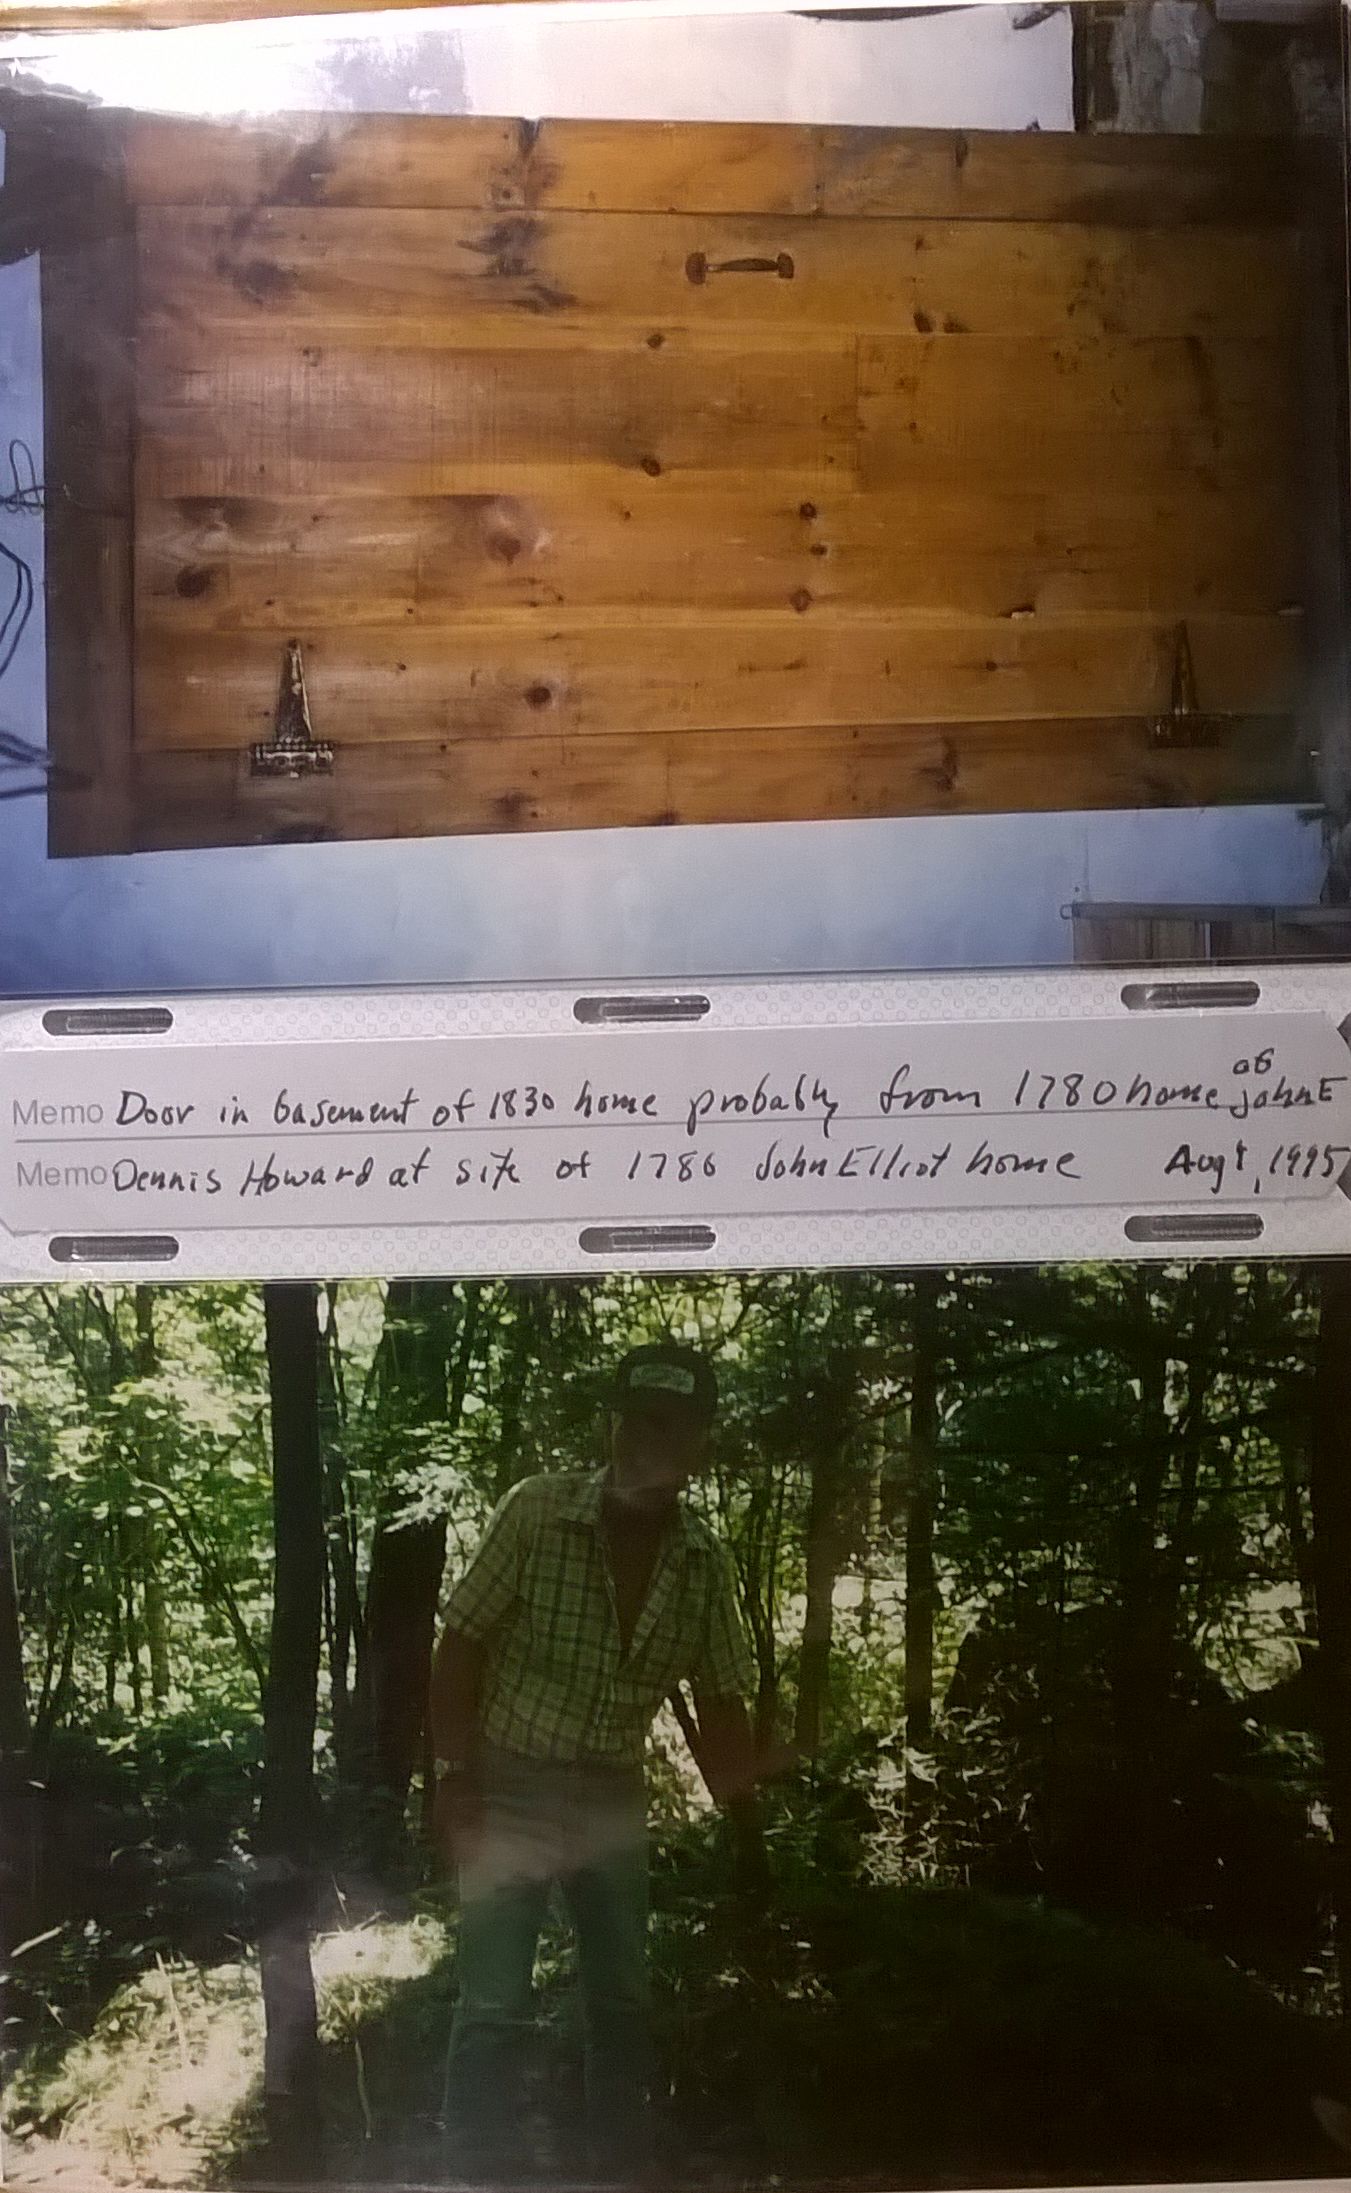 of
Memo Door in basement of 1830 home probably from 1780 home John E
Memo Dennis Howard at site of 1786 John Elliot home Aug 1, 1995